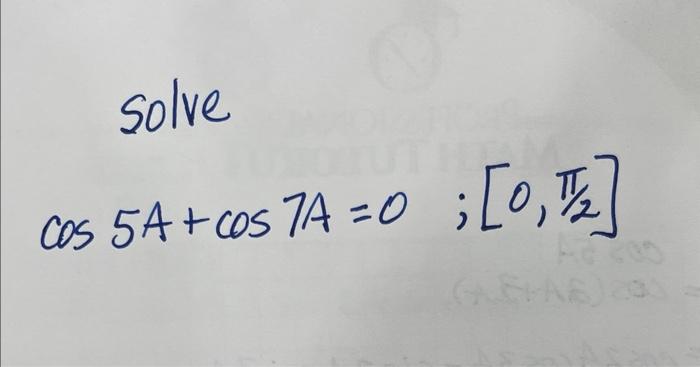 solve
cos 5A + cos 7A = 0 ; [0, π/2]